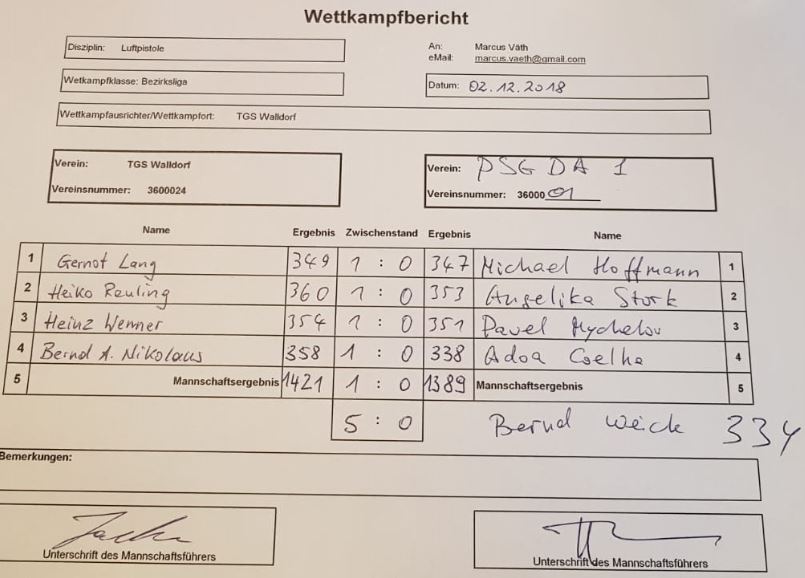 Wettkampfbericht
Disziplin: Luftpistole
An: Marcus Väth
eMail: marcus.vaeth@gmail.com
Wetkampfklasse: Bezirksliga
Datum: 02.12.2018
Wettkampfausrichter/Wettkampfort: TGS Walldorf
Verein: TGS Walldorf
Verein: PSG DA 1
Vereinsnummer: 3600024
Vereinsnummer: 36000 01
Name Ergebnis Zwischenstand Ergebnis Name
1 Gernot Lang 349 1 : 0 347 Michael Hoffmann 1
2 Heiko Reuling 360 1 : 0 353 Angelika Stork 2
3 Heinz Wenner 354 1 : 0 351 Pavel 3
4 Bernd A. Nikolaus 358 1 : 0 338 Coelho 4
5 Mannschaftsergebnis 1421 1 : 0 1389 Mannschaftsergebnis 5
5 : 0 Bernd Weick 334
Bemerkungen:
Unterschrift des Mannschaftsführers
Unterschrift des Mannschaftsführers